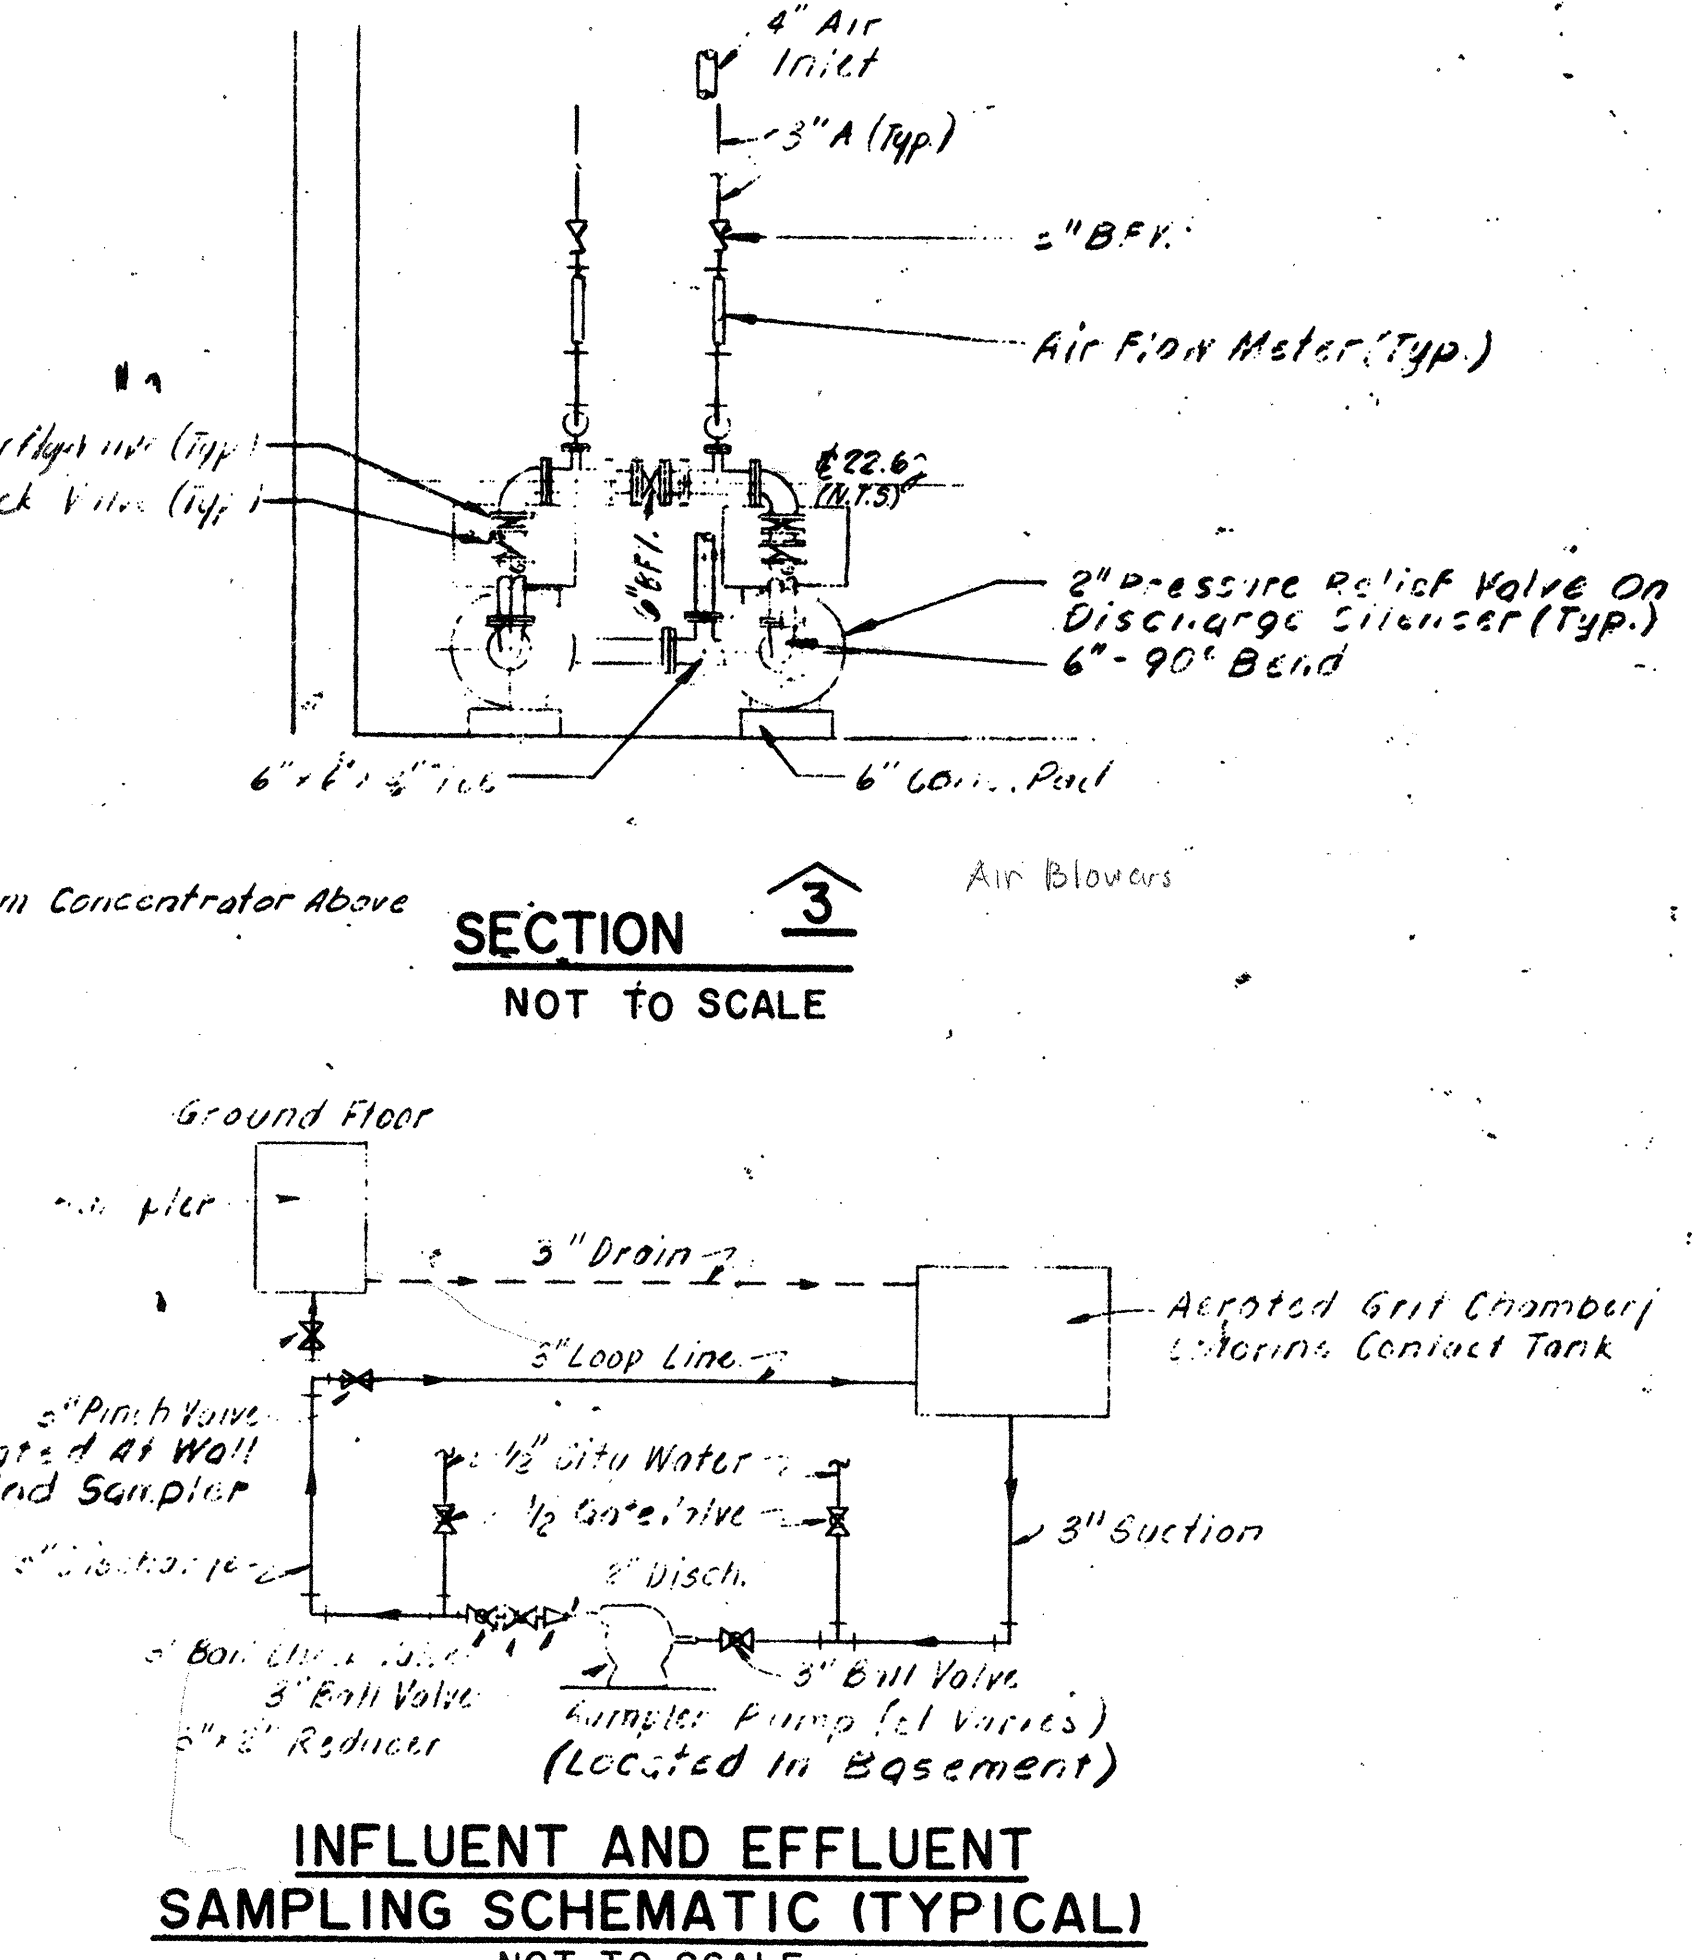 4" Air
Inlet
3" A (Typ.)
" BFV.
Air Flow Meter (Typ.)
(Typ.)
ck Valve (Typ.)
₵ 22.6
(N.T.S)
6" BFV.
2" Pressure Relief Valve On
Discharge Silencer (Typ.)
6" - 90° Bend
6" x 6" x Tee
6" Conc. Pad
Air Blowers
m Concentrator Above
3
SECTION
NOT TO SCALE
Ground Floor
pler
3" Drain
Aerated Grit Chamber/
Chlorine Contact Tank
3" Loop Line
3" Pinch Valve
ated At Wall
nd Sampler
1/2" City Water
1/2 Gate Valve
3" Suction
3" Discharge
2" Disch.
3" Ball Check Valve
3" Ball Valve
3" Ball Valve
3" x 2" Reducer
Sampler Pump (el Varies)
(Located In Basement)
INFLUENT AND EFFLUENT
SAMPLING SCHEMATIC (TYPICAL)
NOT TO SCALE